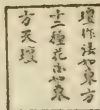 壇作法如東方
十二種花亦如東
方天壇